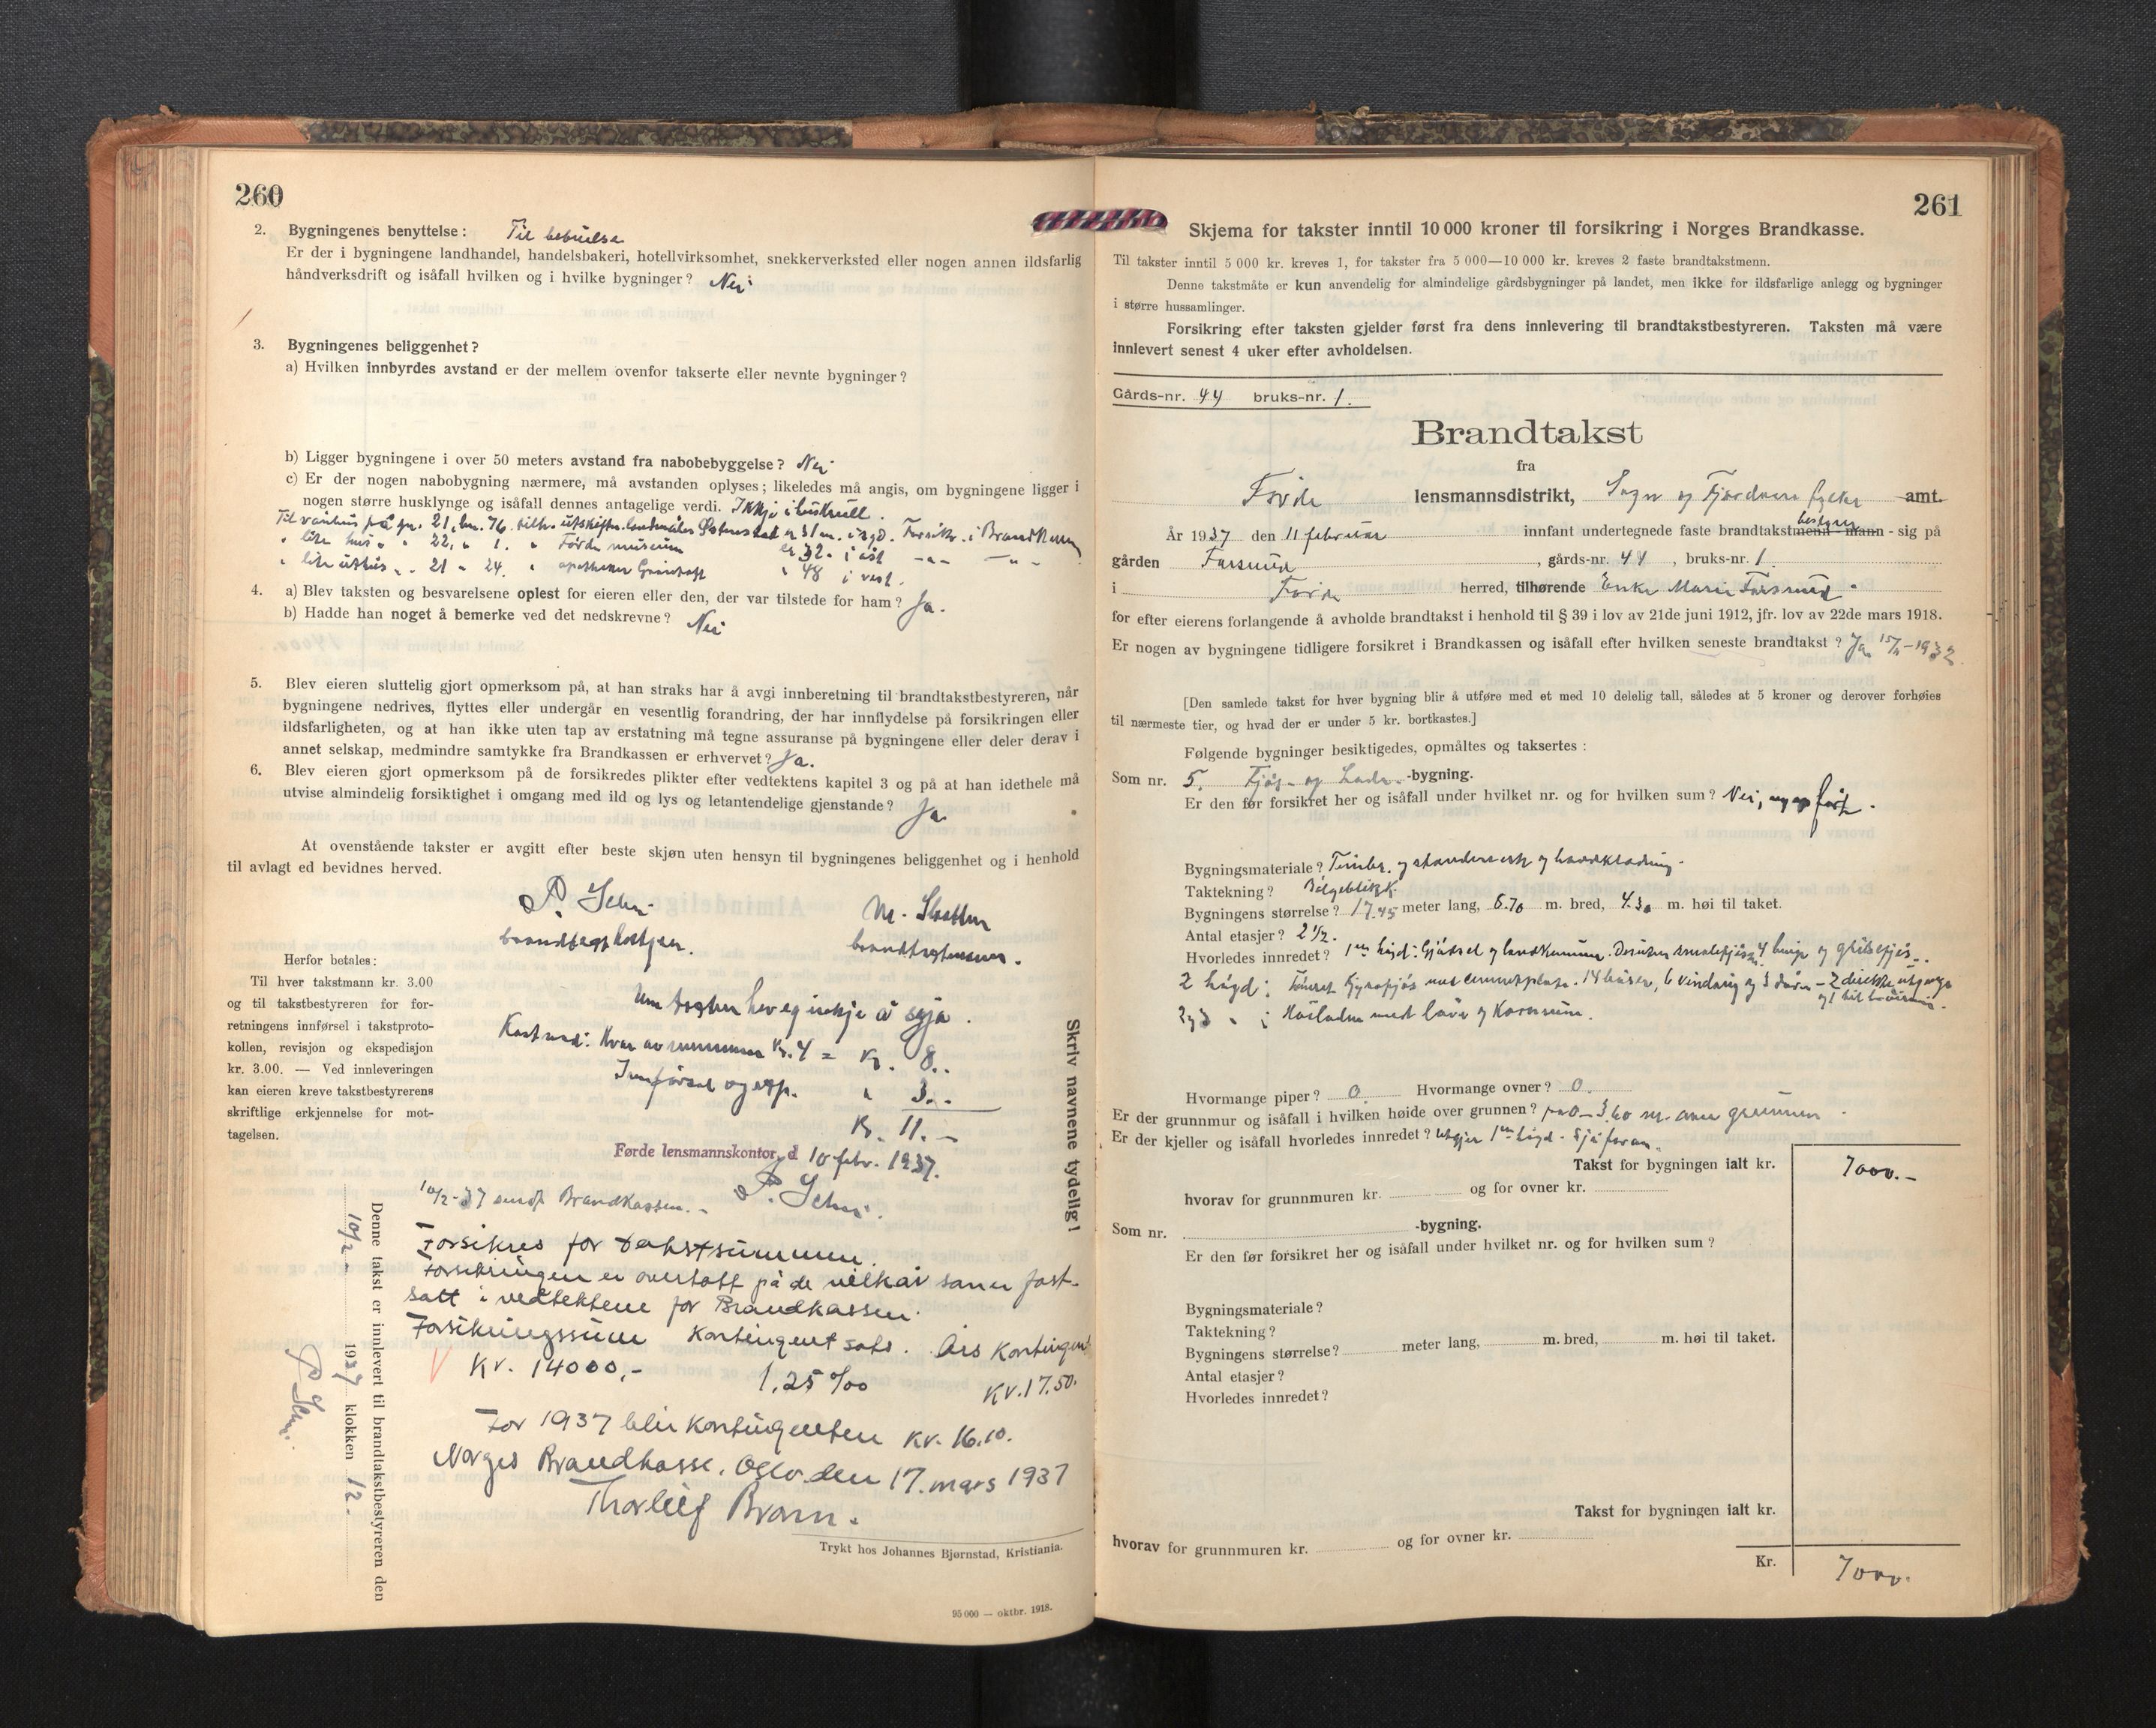 260
2. Bygningenes benyttelse: Til bebuelse
Er der i bygningene landhandel, handelsbakeri, hotellvirksomhet, snekkerverksted eller nogen annen ildsfarlig
håndverksdrift og isåfall hvilken og i hvilke bygninger? Nei
3. Bygningenes beliggenhet?
a) Hvilken innbyrdes avstand er der mellem ovenfor takserte eller nevnte bygninger?
b) Ligger bygningene i over 50 meters avstand fra nabobebyggelse? Nei
c) Er der nogen nabobygning nærmere, må avstanden oplyses; likeledes må angis, om bygningene ligger i
nogen større husklynge og isåfall dennes antagelige verdi. Ikkje i
Til på gn. 21, bn. 76. tilh. er 31 m. i Forsikr. i Brandkassen
" lite hus " " 22, " 1. " Førde museum er 32 - i aust -"- -"-
" lite uthus " " 21 " 24. " apotheker " 48 i vest.
4. a) Blev taksten og besvarelsene oplest for eieren eller den, der var tilstede for ham? Ja.
b) Hadde han noget å bemerke ved det nedskrevne? Nei
5. Blev eieren sluttelig gjort opmerksom på, at han straks har å avgi innberetning til brandtakstbestyreren, når
bygningene nedrives, flyttes eller undergår en vesentlig forandring, der har innflydelse på forsikringen eller
ildsfarligheten, og at han ikke uten tap av erstatning må tegne assuranse på bygningene eller deler derav i
annet selskap, medmindre samtykke fra Brandkassen er erhvervet? Ja.
6. Blev eieren gjort opmerksom på de forsikredes plikter efter vedtektens kapitel 3 og på at han idethele må
utvise almindelig forsiktighet i omgang med ild og lys og letantendelige gjenstande? Ja
At ovenstående takster er avgitt efter beste skjøn uten hensyn til bygningenes beliggenhet og i henhold
til avlagt ed bevidnes herved.
Herfor betales:
Til hver takstmann kr. 3.00
og til takstbestyreren for for-
retningens innførsel i takstproto-
kollen, revisjon og ekspedisjon
kr. 3.00. — Ved innleveringen
kan eieren kreve takstbestyrerens
skriftlige erkjennelse for mot-
tagelsen.
Um taksten hev eg inkje å segja.
Kostnad: Kvar av mennene kr. 4 = kr. 8.-
Innførsel og exp. " 3.-
Kr. 11.-
Førde lensmannskontor, d. 10 febr. 1937.
10/2-37 sendt Brandkassen.-
Forsikres for takstsummen.
Forsikringen er overtatt på de vilkår som er fast-
satt i vedtektene for Brandkassen.
Forsikringssum Kontingentsats. Års kontingent
Kr. 14000,- 1,25 ‰ Kr. 17.50.
For 1937 blir kontingenten kr. 16.10.
Norges Brandkasse, Oslo den 17. mars 1937
Thorleif Bram.
Skriv navnene tydelig!
Denne takst er innlevert til brandtakstbestyreren den
10/2- 1937 klokken 12.
Trykt hos Johannes Bjørnstad, Kristiania.
95 000 — oktbr. 1918.
261
Skjema for takster inntil 10 000 kroner til forsikring i Norges Brandkasse.
Til takster inntil 5 000 kr. kreves 1, for takster fra 5 000—10 000 kr. kreves 2 faste brandtakstmenn.
Denne takstmåte er kun anvendelig for almindelige gårdsbygninger på landet, men ikke for ildsfarlige anlegg og bygninger
i større hussamlinger.
Forsikring efter taksten gjelder først fra dens innlevering til brandtakstbestyreren. Taksten må være
innlevert senest 4 uker efter avholdelsen.
Gårds-nr. 44 bruks-nr. 1.
Brandtakst
fra
Førde lensmannsdistrikt, Sogn og Fjordane fylke amt.
År 1937 den 11 februar innfant undertegnede faste brandtakstmenn - mann - sig på
bestyrer
gården Farsund, gårds-nr. 44, bruks-nr. 1.
i Førde herred, tilhørende Enke Marie Farsund
for efter eierens forlangende å avholde brandtakst i henhold til § 39 i lov av 21de juni 1912, jfr. lov av 22de mars 1918.
Er nogen av bygningene tidligere forsikret i Brandkassen og isåfall efter hvilken seneste brandtakst? Ja, 1932
[Den samlede takst for hver bygning blir å utføre med et med 10 delelig tall, således at 5 kroner og derover forhøies
til nærmeste tier, og hvad der er under 5 kr. bortkastes.]
Følgende bygninger besiktigedes, opmåltes og taksertes:
Som nr. 5. Fjøs- og Lade- -bygning.
Er den før forsikret her og isåfall under hvilket nr. og for hvilken sum? Nei, ny opført.
Bygningsmateriale? Timber og standerverk og bordkledning.
Taktekning? Bølgeblikk
Bygningens størrelse? 17.45 meter lang, 6.70 m. bred, 4.30 m. høi til taket.
Antal etasjer? 2 1/2.
Hvorledes innredet? 1ste høgd: Gjødsel og landkummer. 4 binge og grisefjøs.
2 høgd: 14 båser, 6 vindaug og 3 dører - 2 direkte utgange
2 og 3 " : Høilader med låve og kornrum.
Hvormange piper? 0 Hvormange ovner? 0.
Er der grunnmur og isåfall i hvilken høide over grunnen? fra 0 - 3,60 m. over grunnen
Er der kjeller og isåfall hvorledes innredet? utgjer 1ste høgd. Sjå foran
Takst for bygningen ialt kr. 7000.-
hvorav for grunnmuren kr. og for ovner kr.
Som nr. -bygning.
Er den før forsikret her og isåfall under hvilket nr. og for hvilken sum?
Bygningsmateriale?
Taktekning?
Bygningens størrelse? meter lang, m. bred, m. høi til taket.
Antal etasjer?
Hvorledes innredet?
Takst for bygningen ialt kr.
hvorav for grunnmuren kr. og for ovner kr.
Kr. 7000.